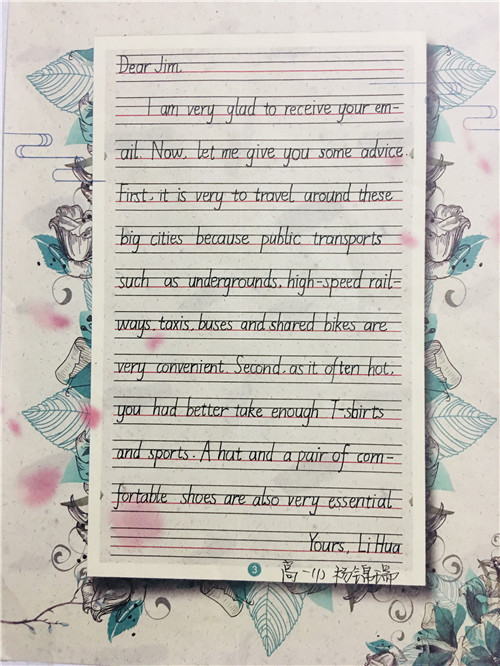 Dear Jim.
I am very glad to receive your em-
ail. Now, let me give you some advice.
First, it is very to travel around these
big cities because public transports
such as undergrounds, high-speed rail-
ways, taxis, buses and shared bikes are
very convenient. Second, as it often hot,
you had better take enough T-shirts
and sports. A hat and a pair of com-
fortable shoes are also very essential.
Yours, Li Hua
3
高一(1) 杨锦端